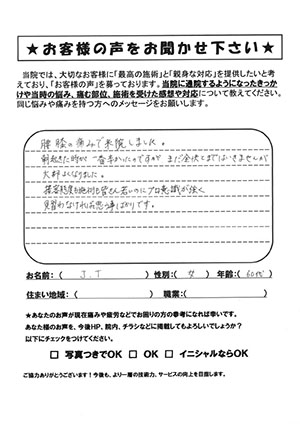 ★お客様の声をお聞かせ下さい★
当院では、大切なお客様に「最高の施術」と「親身な対応」を提供したいと考え
ており、「お客様の声」を募っております。当院に通院するようになったきっか
けや当時の悩み、痛む部位、施術を受けた感想や対応について教えてください。
同じ悩みや痛みを持つ方へのメッセージをお願いします。
腰 膝の痛みで来院しました。
朝起きた時が一番辛かったのですが まだ全快とまではいきませんが
大幹よくなりました。
接客態度も施術も皆さん若いのにプロ意識が強く
見習わなければと思う事ばかりです。
お名前:( J.T ) 性別:( 女 ) 年齢:( 60代 )
住まい地域:( ) 職業:( )
★あなたのお声が現在痛みや疲労などでお困りの方の参考になれば幸いです。
あなた様のお声を、今後HP、院内、チラシなどに掲載してもよろしいでしょうか?
以下にチェックをつけてください。
□ 写真つきでOK □ OK □ イニシャルならOK
ご協力ありがとうございます!今後も、より一層の技術力、サービスの向上を目指します。